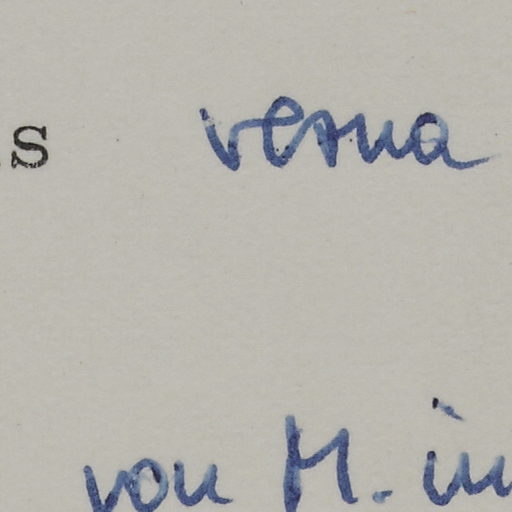 s verna
von M. in